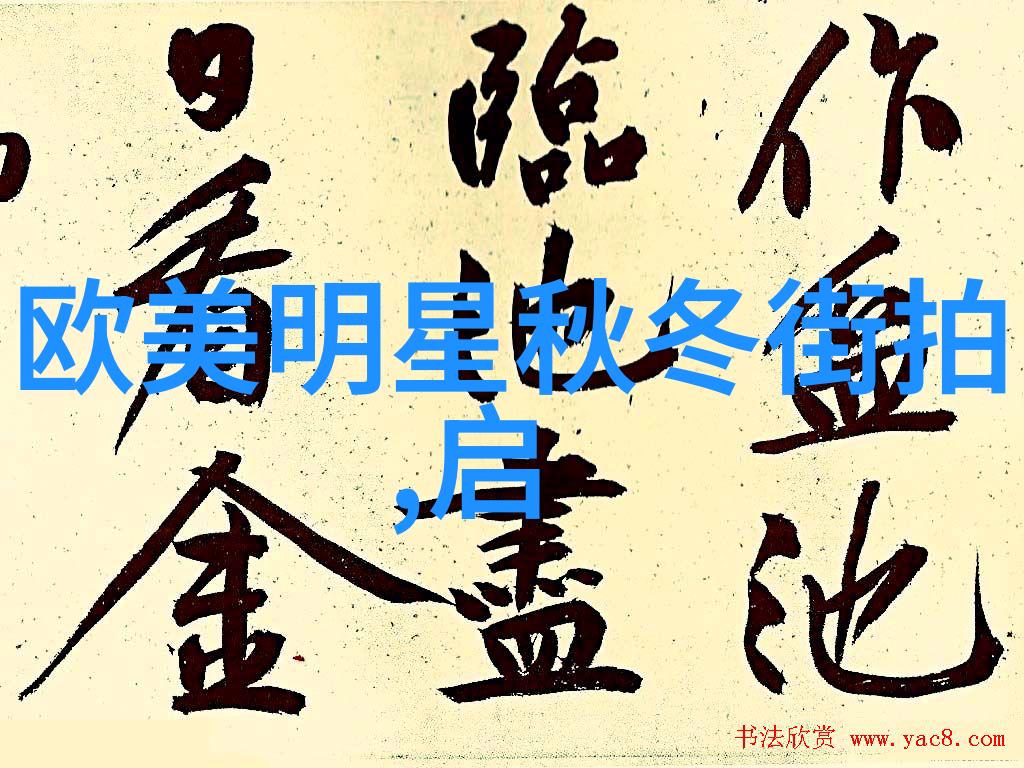 作盆池
臨地盡
日看金
欧美明星秋冬街拍
,启
书法欣赏 www.yac8.com